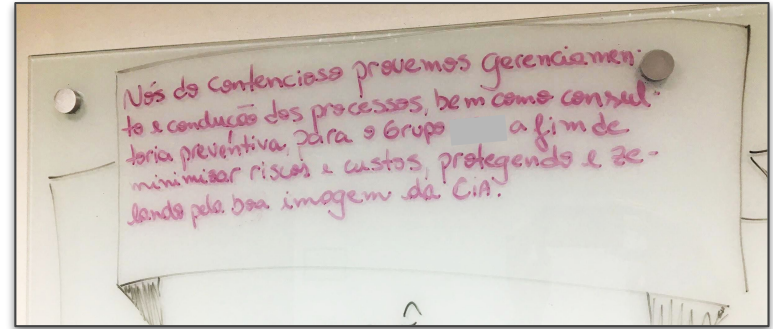 Nós do contencioso provemos gerenciamen-
to e condução dos processos, bem como consul-
toria preventiva, para o Grupo a fim de
minimizar riscos e custos, protegendo e ze-
lando pela boa imagem da CIA.